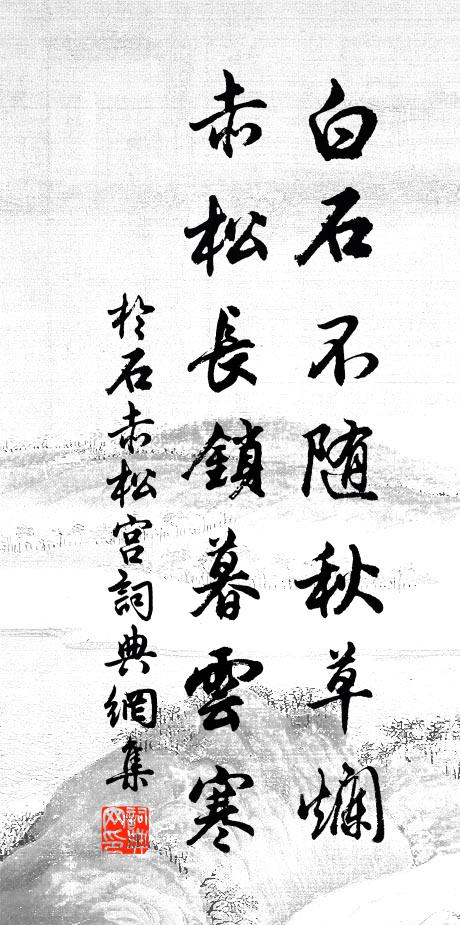 白石不随秋草爛
赤松長鎖暮雲寒
於石赤松宫詞典網集